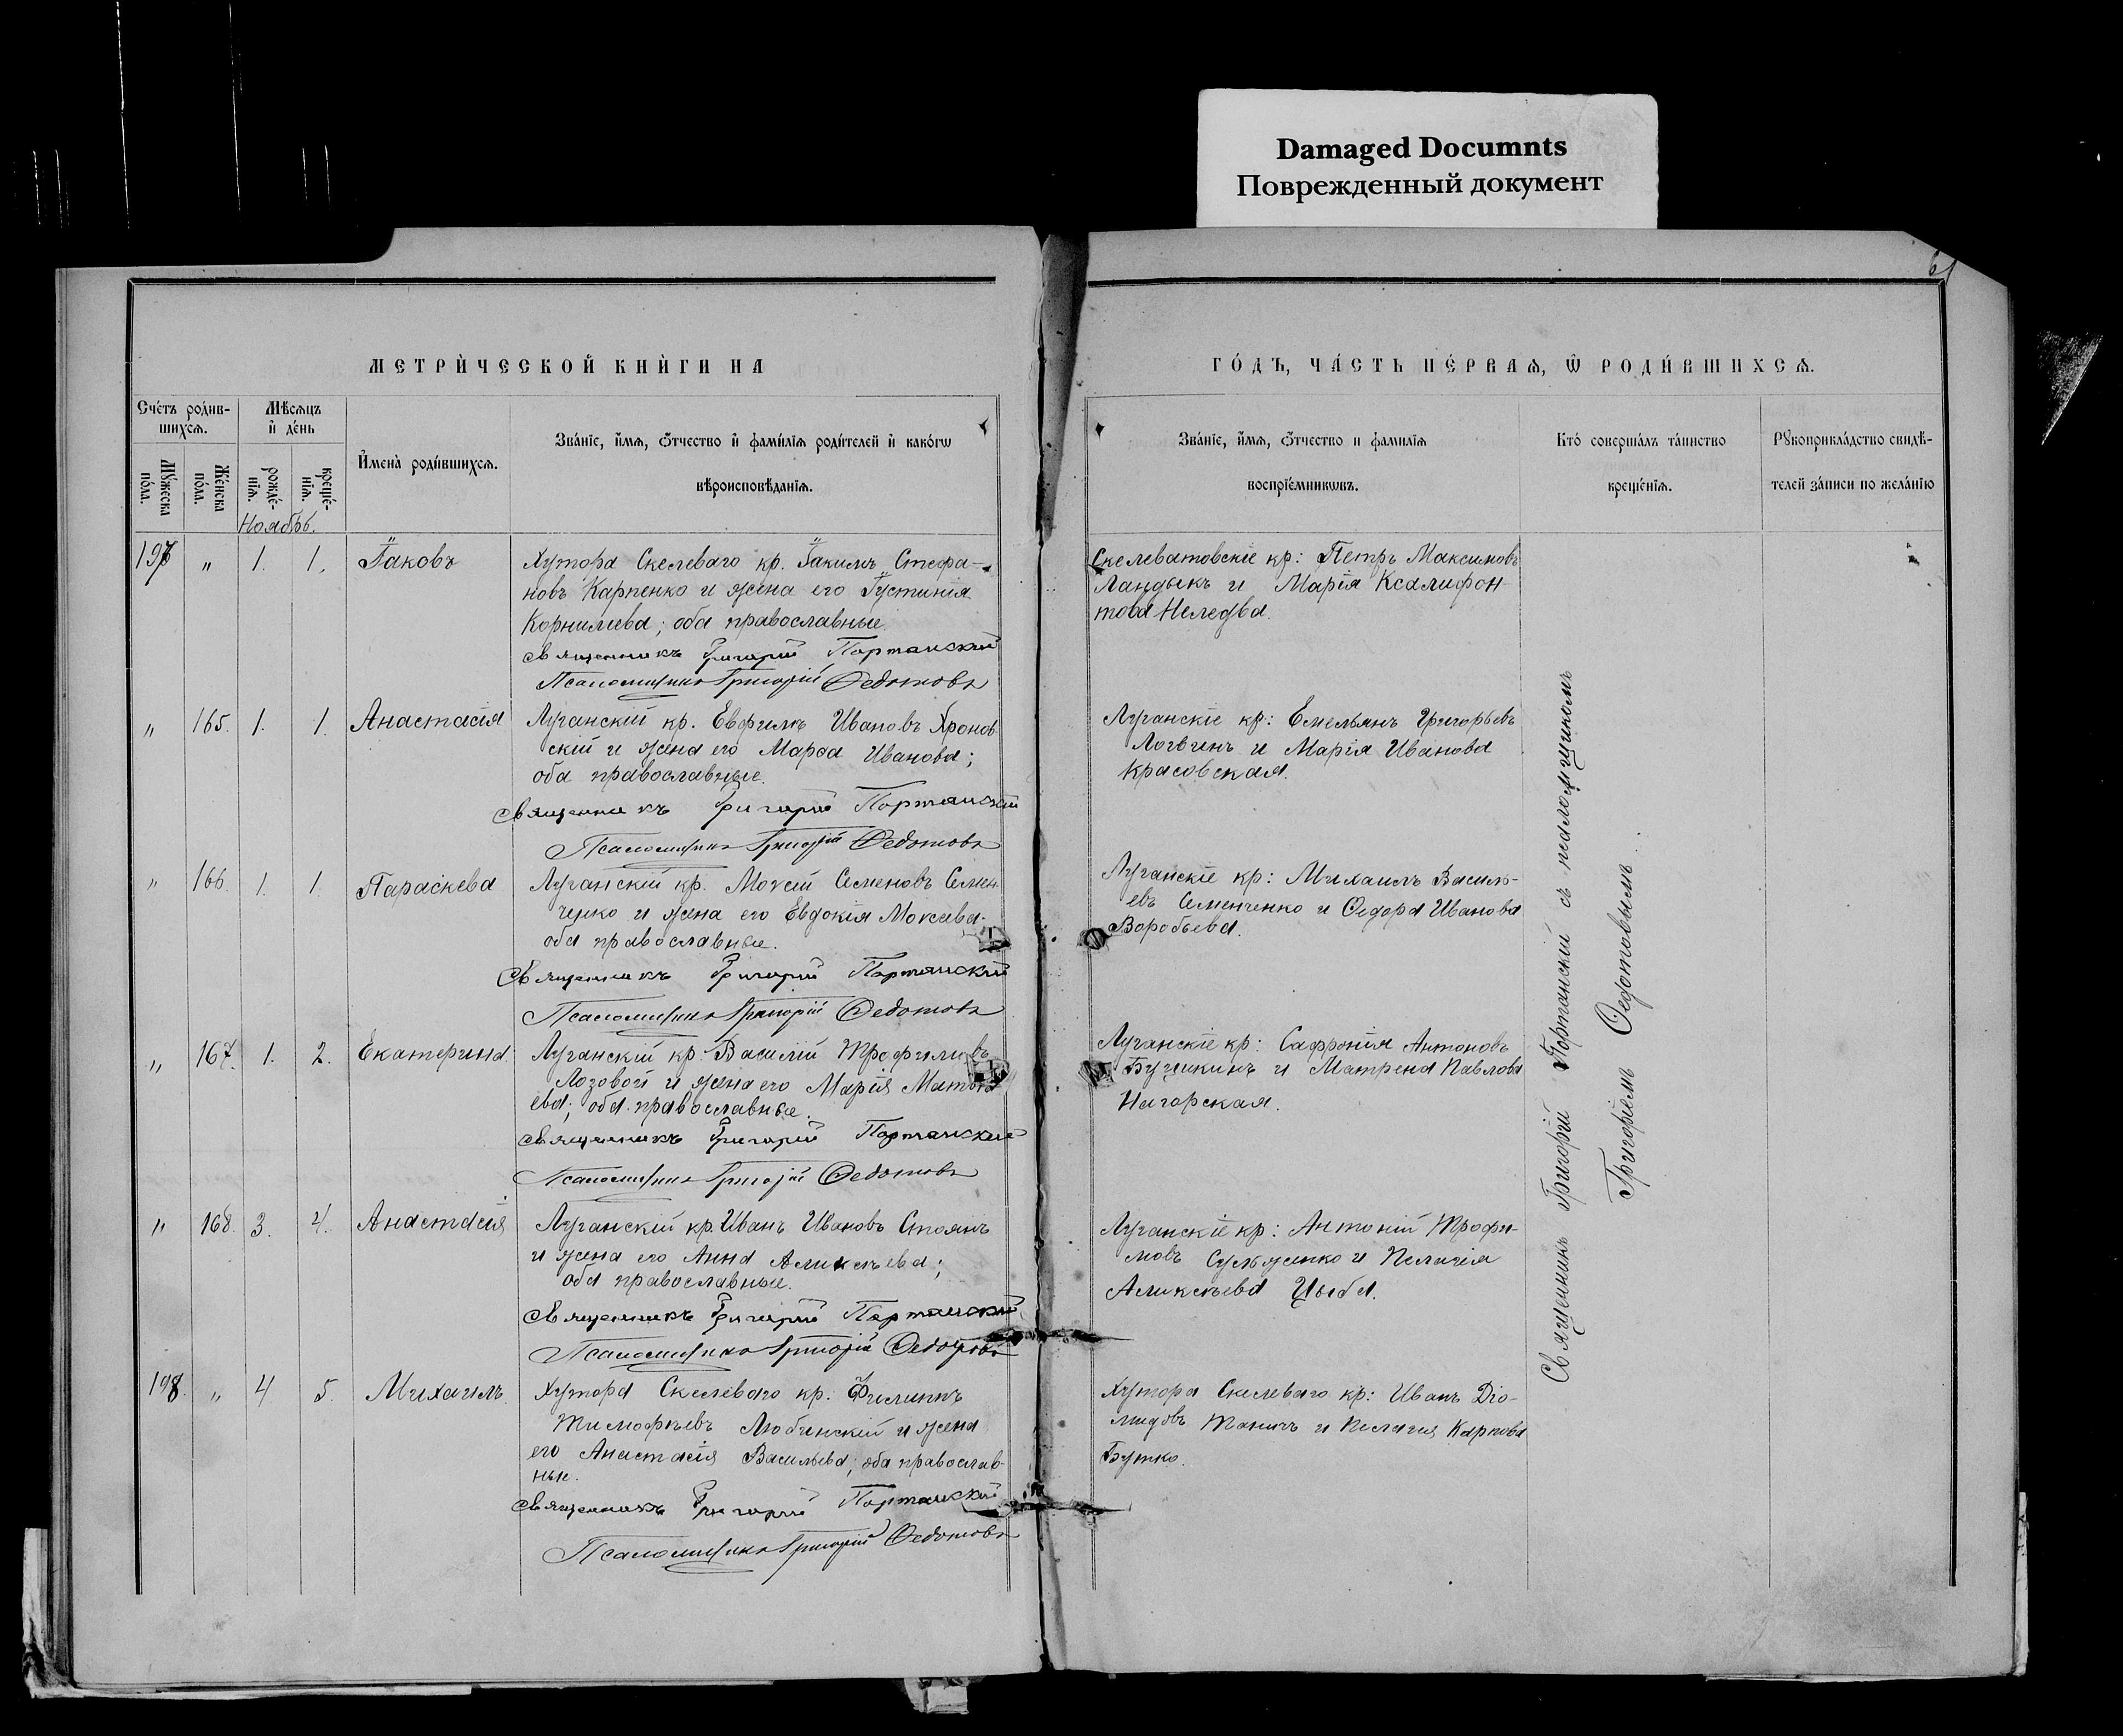 Damaged Documnts
Поврежденный документ
61
МЕТРИ́ЧЕСКОЙ КНИ́ГИ НА
ГО́ДЪ, ЧА́СТЬ ПЕ́РВАѦ, Ѿ РОДИ́ВШИХСѦ.
Сче́тъ роди́в-
шихсѧ.
Мѣ́сѧцъ
и҆ де́нь
Мꙋ́жеска
по́ла.
Же́нска
по́ла.
рожде́-
нїѧ.
креще́-
нїѧ.
И҆мена̀ роди́вшихсѧ.
Зва́нїе, и҆́мѧ, ѻ҆́тчество и҆ фами́лїѧ роди́телей и҆ како́гѡ
вѣроисповѣ́данїѧ.
Зва́нїе, и҆́мѧ, ѻ҆́тчество и фами́лїѧ
воспрїе́мникѡвъ.
Кто́ соверша́лъ та́инство
креще́нїѧ.
Рꙋкоприкла́дство свидѣ́-
телей за́писи по жела́нїю
Ноябрь.
197 " 1. 1. Іаковъ
Хутора Скелеваго кр. Іакимъ Стефа-
новъ Карпенко и жена его Іустинія
Корнилиева; оба православные.
Священникъ Григорій Портанскій
Псаломщикъ Григорій Федотовъ
Скелеватовскіе кр: Петръ Максимовъ
Ландыкъ и Марія Ксалифон
това Неледва.
" 165. 1. 1. Анастасія
Луганскій кр. Евфимъ Ивановъ Хронов
скій и жена его Марѳа Иванова;
оба православные.
Священникъ Григорій Портанскій
Псаломщикъ Григорій Федотовъ
Луганскіе кр: Емельянъ Григорьевъ
Логвинъ и Марія Иванова
Красовская.
" 166. 1. 1. Параскева
Луганскій кр. Моѵсей Семеновъ Семен
ченко и жена его Евдокія Моѵсеева.
оба православные.
Священникъ Григорій Портанскій
Псаломщикъ Григорій Федотовъ
Луганскіе кр: Михаилъ Василь-
евъ Семенченко и Ѳедора Иванова
Воробьева.
" 167. 1. 2. Екатерина
Луганскій кр. Василій Трофимовъ
Лозовой и жена его Марія Матѳ
ева; оба православные.
Священникъ Григорій Портанский
Псаломщикъ Григорій Федотовъ
Луганскіе кр: Сафронія Антоновъ
Бушикинъ и Матрена Павлова
Нагорская.
" 168. 3. 4. Анастасія
Луганскій кр. Иванъ Ивановъ Стоянъ
и жена его Анна Алексѣева;
оба православные.
Священникъ Григорій Портанскій
Псаломщикъ Григорій Федотовъ
Луганскіе кр: Антоній Трофи-
мовъ Сульженко и Пелагія
Алексѣева Цыба.
198. " 4 5. Михаилъ.
Хутора Скелеваго кр. Филиппъ
Тимофѣевъ Любинскій и жена
его Анастасія Васильева; оба православ-
ные.
Священникъ Григорій Портанскій
Псаломщикъ Григорій Федотовъ
Хутора Скелеваго кр: Иванъ Діо-
мидовъ Таничъ и Пелагія Карпова
Бутко.
Священникъ Григорій Портанскій съ псаломщикомъ
Григоріемъ Ѳедотовымъ.